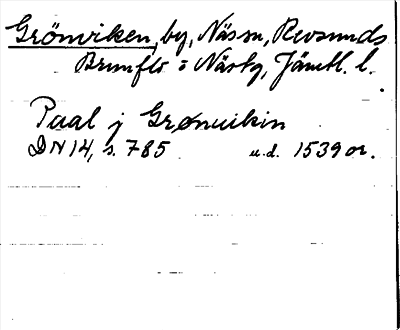 Grönviken, by, Näsm, Revsunds
Brunflo = Näsby, Jämtl. l.
Paal j Grønuikin
DN 14, s. 785 u.d. 1539 or.